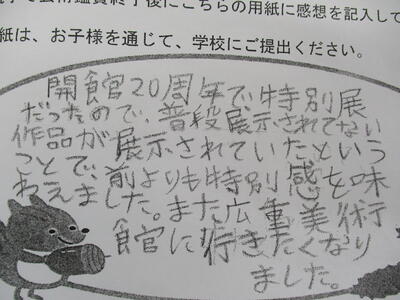 親子で芸術鑑賞終了後にこちらの用紙に感想を記入して
紙は、お子様を通じて、学校にご提出ください。
開館20周年で特別展
だったので、普段展示されてない
作品が展示されていたという
ことで、前よりも特別感を味
わえました。また広重美術
館に行きたくなり
ました。